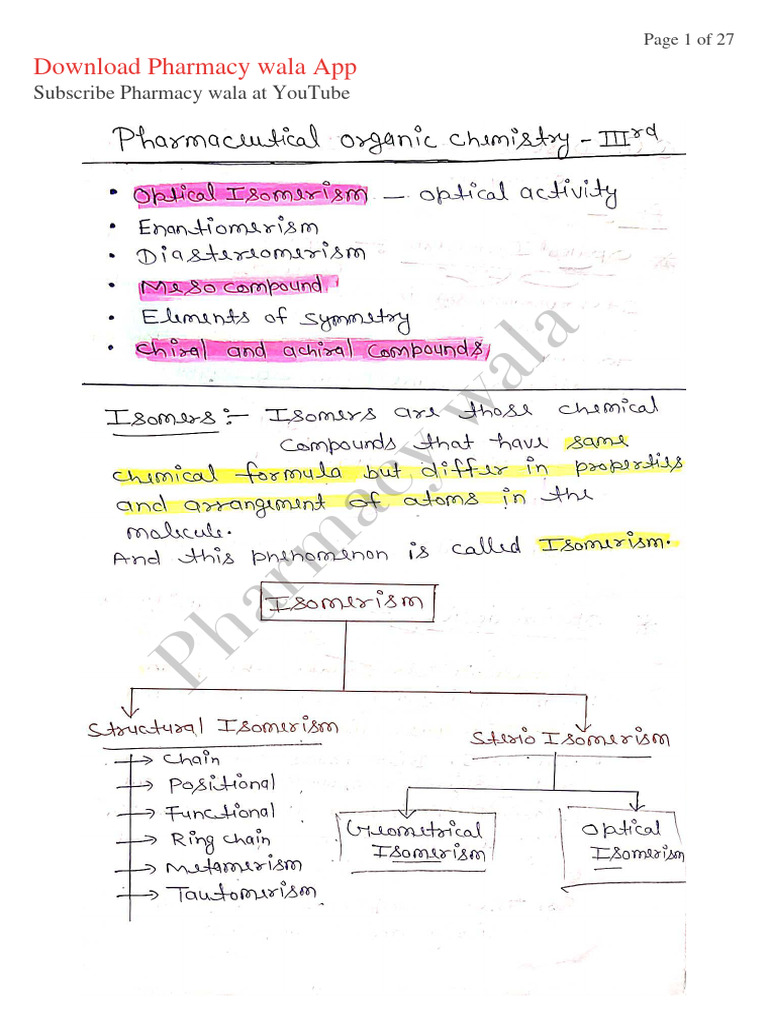 Page 1 of 27
Download Pharmacy wala App
Subscribe Pharmacy wala at YouTube
Pharmaceutical organic chemistry - IIIrd
• Optical Isomerism — optical activity
• Enantiomerism
• Diastereomerism
• Meso compound
• Elements of symmetry
• Chiral and achiral compounds
Isomers :- Isomers are those chemical
compounds that have same
chemical formula but differ in properties
and arrangement of atoms in the
molecule.
And this phenomenon is called Isomerism.
Isomerism
Structural Isomerism
Chain
Positional
Functional
Ring chain
Metamerism
Tautomerism
Sterio Isomerism
Geometrical
Isomerism
Optical
Isomerism
Pharmacy wala